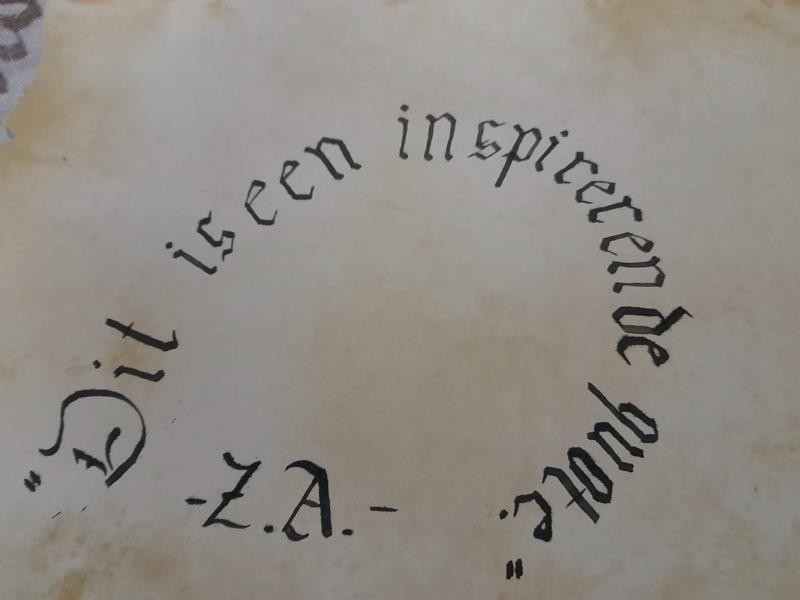 "Dit is een inspirerende quote"
-Z.A.-